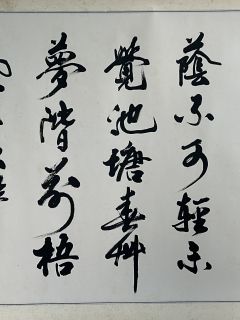 蔭不可輕未
覺池塘春草
夢階前梧